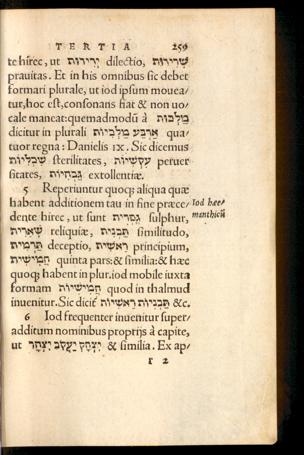 TERTIA 259
te hirec, ut יְדִידוּת dilectio, שְׁרִירוּת
prauitas. Et in his omnibus sic debet
formari plurale, ut iod ipsum mouea/
tur, hoc est, consonans fiat & non uo/
cale maneat: quemadmodū à מַלְכוּת
dicitur in plurali אַרְבַּע מַלְכֻיוֹת qua/
tuor regna: Danielis IX. Sic dicemus
שְׁכֻלִיוֹת sterilitates, עִקְשִׁיוֹת peruer
sitates, extollentiæ.
5 Reperiuntur quoq; aliqua quæ
habent additionem tau in fine præce/ Iod hee/
dente hirec, ut sunt גָפְרִית sulphur, manthicū
שְׁאֵרִית reliquiæ, תַּבְנִית similitudo,
תַּרְמִית deceptio, רֵאשִׁית principium,
חֲמִישִׁית quinta pars: & similia: & hæc
quoq; habent in plur. iod mobile iuxta
formam חֲמִישִׁיוֹת quod in thalmud
inuenitur. Sic dicit̄ תַּבְנִיוֹת רֵאשִׁיוֹת &c.
6 Iod frequenter inuenitur super/
additum nominibus proprijs à capite,
ut יִצְחָק יַעֲקֹב יִצְהָר & similia. Ex ap/
r 2